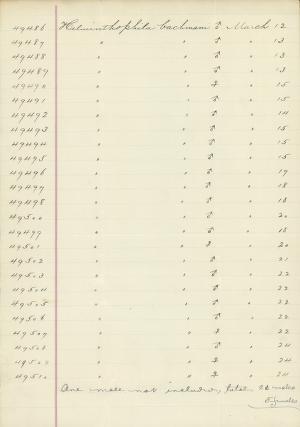 49486 Helminthophila bachmani ♂ March 12
49487 " " ♂ " 13
49488 " " ♂ " 13
49489 " " ♂ " 13
49490 " " ♀ " 15
49491 " " ♂ " 15
49492 " " ♂ " 14
49493 " " ♂ " 15
49494 " " ♂ " 15
49495 " " ♂ " 15
49496 " " ♂ " 17
49497 " " ♂ " 18
49498 " " ♂ " 18
49500 " " ♂ " 20
49499 " " ♂ " 18
49501 " " ♀ " 20
49502 " " ♂ " 21
49503 " " ♂ " 22
49504 " " ♂ " 22
49505 " " ♂ " 22
49506 " " ♂ " 22
49507 " " ♀ " 22
49508 " " ♂ " 24
49509 " " ♀ " 24
49510 " " ♀ " 24
One male not included, total males
5 females